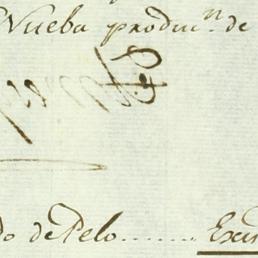 Nueba produc.n de
do de Pelo........